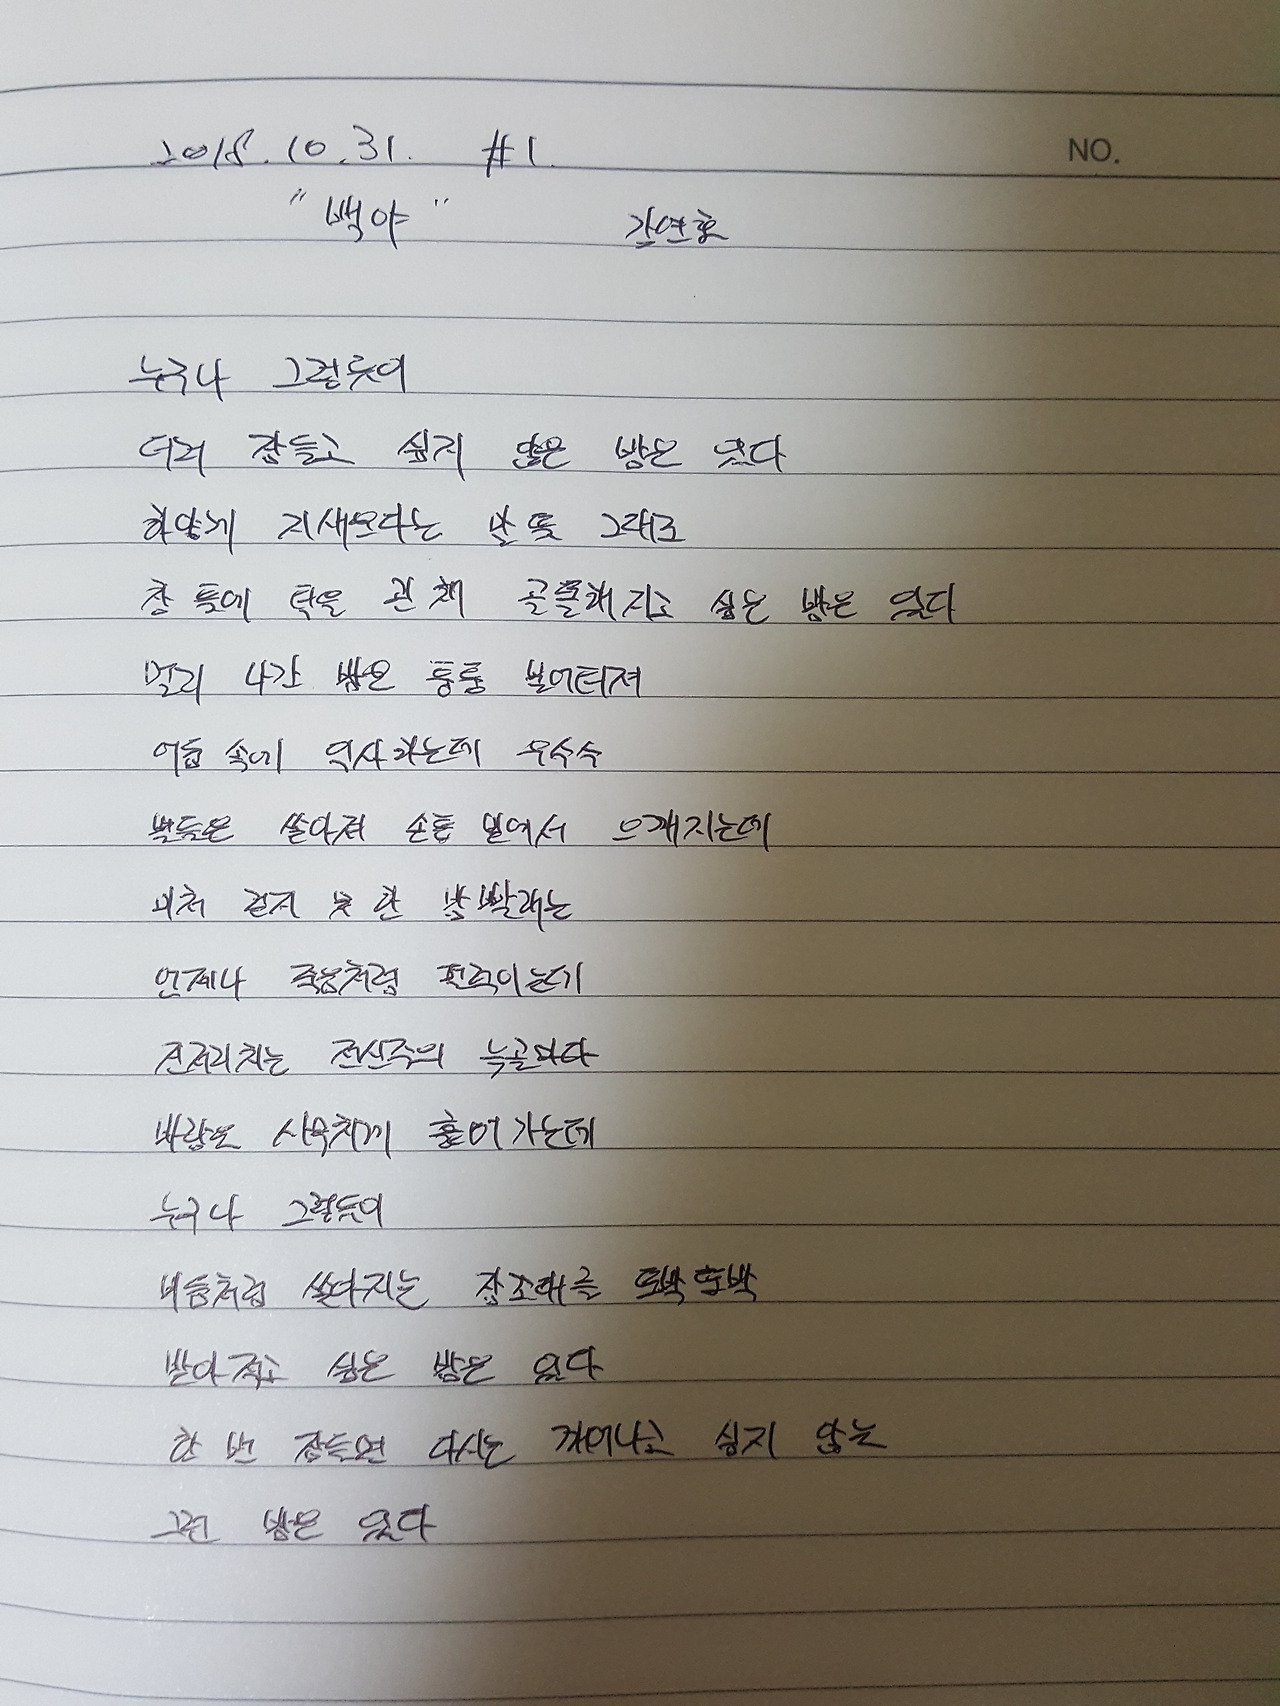 2018.10.31. #1.
NO.
"백야" 강연호
누구나 그렇듯이
더러 잠들고 싶지 않은 밤은 있다
하얗게 지새운다는 말 뜻 그대로
창 틀에 턱을 괸 채 골똘해지고 싶은 밤은 있다
멀리 나간 밤은 퉁퉁 불어터져
어둠 속에 익사하는데 우수수
별들은 쏟아져 손톱 밑에서 으깨지는데
미처 걷지 못 한 밤빨래는
언제나 죽음처럼 펄럭이는데
진저리치는 전신주의 늑골마다
바람은 사무치게 훑어가는데
누구나 그렇듯이
비듬처럼 쏟아지는 잠조태를 또박또박
받아적고 싶은 밤은 있다
한 번 잠들면 다시는 깨어나고 싶지 않는
그런 밤은 있다